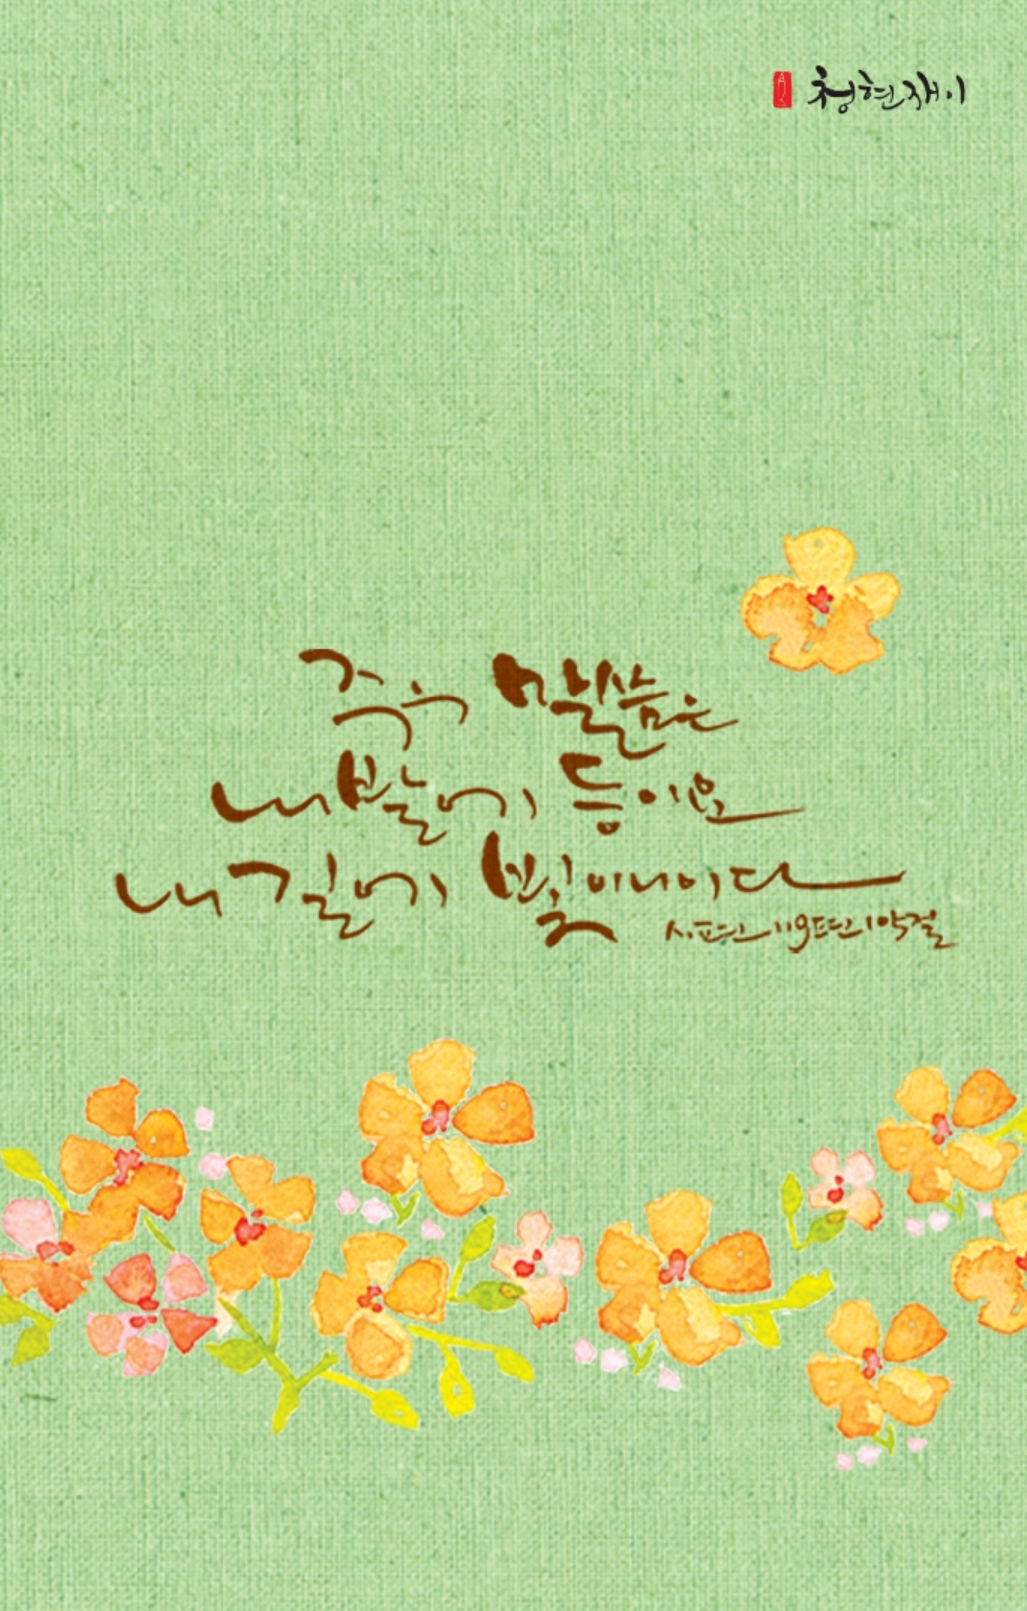 청현재이
주의 말씀은
내 발에 등이요
내 길에 빛이니이다
시편 119편 105절